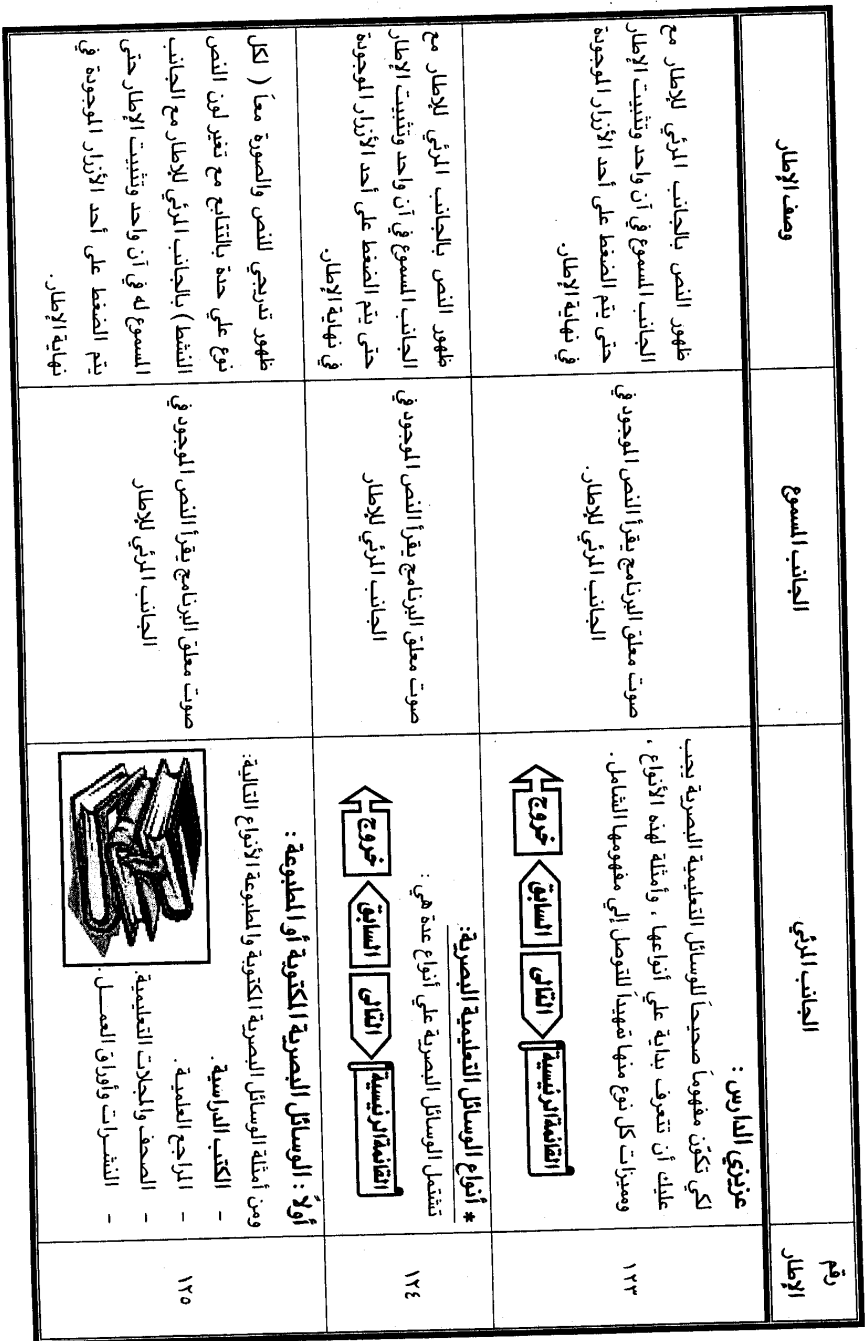 رقم
الإطار
الجانب المرئي
الجانب المسموع
وصف الإطار
١٢٣
عزيزي الدارس :
لكي تكوّن مفهوماً صحيحاً للوسائل التعليمية البصرية يجب
عليك أن تتعرف بداية علي أنواعها ، وأمثلة لهذه الأنواع ،
ومميزات كل نوع منها تمهيداً للتوصل إلي مفهومها الشامل .
القائمة الرئيسية
التالى
السابق
خروج
صوت معلق البرنامج يقرأ النص الموجود في
الجانب المرئي للإطار .
ظهور النص بالجانب المرئي للإطار مع
الجانب المسموع في آن واحد وتثبيت الإطار
حتى يتم الضغط على أحد الأزرار الموجودة
في نهاية الإطار.
١٢٤
* أنواع الوسائل التعليمية البصرية:
تشتمل الوسائل البصرية علي أنواع عدة هي :
القائمة الرئيسية
التالى
السابق
خروج
صوت معلق البرنامج يقرأ النص الموجود في
الجانب المرئي للإطار
ظهور النص بالجانب المرئي للإطار مع
الجانب المسموع في آن واحد وتثبيت الإطار
حتى يتم الضغط على أحد الأزرار الموجودة
في نهاية الإطار.
١٢٥
أولاً : الوسائل البصرية المكتوبة أو المطبوعة :
ومن أمثلة الوسائل البصرية المكتوبة والمطبوعة الأنواع التالية:
- الكتب الدراسية .
- المراجع العلمية .
- الصحف والمجلات التعليمية.
- النشرات وأوراق العمـــل .
صوت معلق البرنامج يقرأ النص الموجود في
الجانب المرئي للإطار
ظهور تدريجي للنص والصورة معاً ( لكل
نوع علي حدة بالتتابع مع تغير لون النص
النشط ) بالجانب المرئي للإطار مع الجانب
المسموع له في آن واحد وتثبيت الإطار حتى
يتم الضغط على أحد الأزرار الموجودة في
نهاية الإطار .